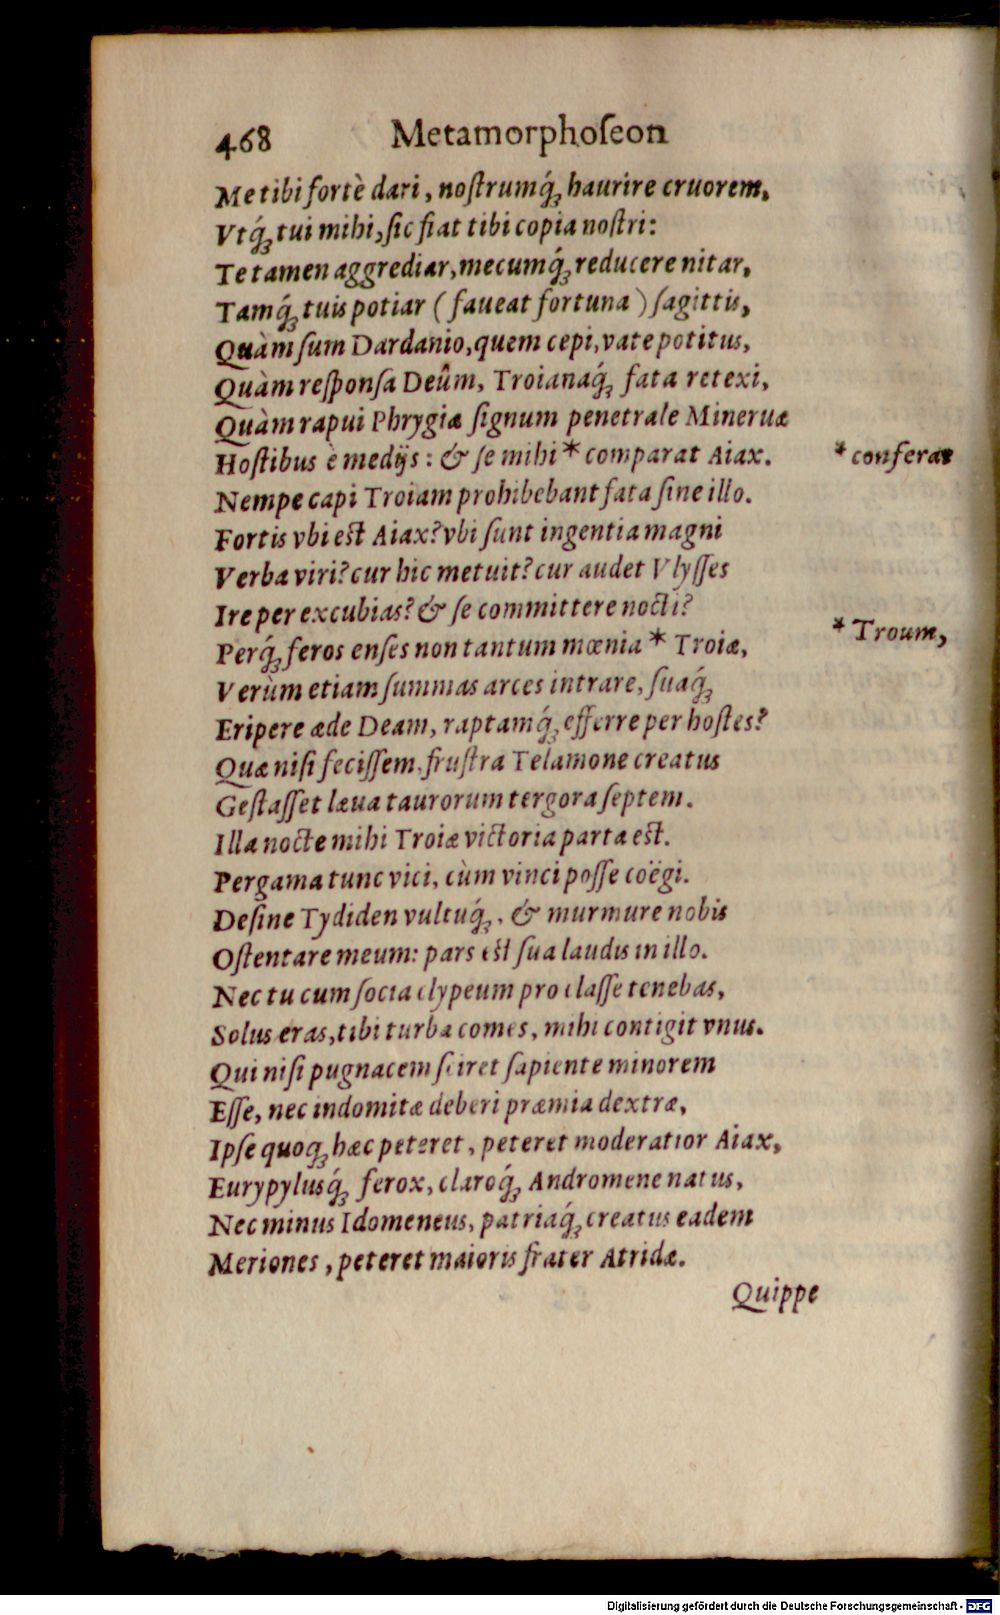 468 Metamorphoſeon
Me tibi fortè dari, noſtrumq́ꝫ haurire cruorem,
Vtq́ꝫ tui mihi, ſic fiat tibi copia noſtri:
Te tamen aggrediar, mecumq́ꝫ reducere nitar,
Tamq́ꝫ tuis potiar (faueat fortuna) ſagittis,
Quàm ſum Dardanio, quem cepi, vate potitus,
Quàm reſponſa Deûm, Troianaq́ꝫ fata retexi,
Quàm rapui Phrygiæ ſignum penetrale Mineruæ
Hoſtibus è medijs: & ſe mihi * comparat Aiax. * conferat
Nempe capi Troiam prohibebant fata ſine illo.
Fortis vbi eſt Aiax? vbi ſunt ingentia magni
Verba viri? cur hic metuit? cur audet Vlyſſes
Ire per excubias? & ſe committere nocti?
Perq́ꝫ feros enſes non tantum mœnia * Troiæ, * Troum,
Verùm etiam ſummas arces intrare, ſuaq́ꝫ
Eripere æde Deam, raptamq́ꝫ efferre per hoſtes?
Quæ niſi feciſſem, fruſtra Telamone creatus
Geſtaſſet læua taurorum tergora ſeptem.
Illa nocte mihi Troiæ victoria parta eſt.
Pergama tunc vici, cùm vinci poſſe coëgi.
Deſine Tydiden vultuq́ꝫ, & murmure nobis
Oſtentare meum: pars eſt ſua laudis in illo.
Nec tu cum ſocia clypeum pro claſſe tenebas,
Solus eras, tibi turba comes, mihi contigit vnus.
Qui niſi pugnacem ſciret ſapiente minorem
Eſſe, nec indomitæ deberi præmia dextræ,
Ipſe quoqꝫ hæc peteret, peteret moderatior Aiax,
Eurypylusq́ꝫ ferox, claroq́ꝫ Andromene natus,
Nec minus Idomeneus, patriaq́ꝫ creatus eadem
Meriones, peteret maioris frater Atridæ.
Quippe
Digitalisierung gefördert durch die Deutsche Forschungsgemeinschaft - DFG